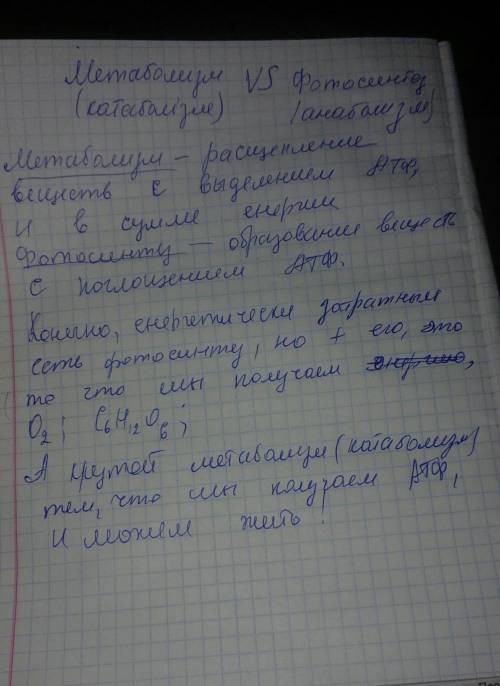 Метаболизм VS Фотосинтез
(катаболізм) (анаболізм)
Метаболизм – расщепление
веществ с выделением АТФ,
и в сумме енергии
Фотосинтез – образование веществ
с поглощением АТФ.
Конечно, енергетически затратным
есть фотосинтез, но + его, это
то что мы получаем енергию,
O2; C6H12O6;
А крутой метаболизм (катаболизм)
тем, что мы получаем АТФ,
и можем жить!